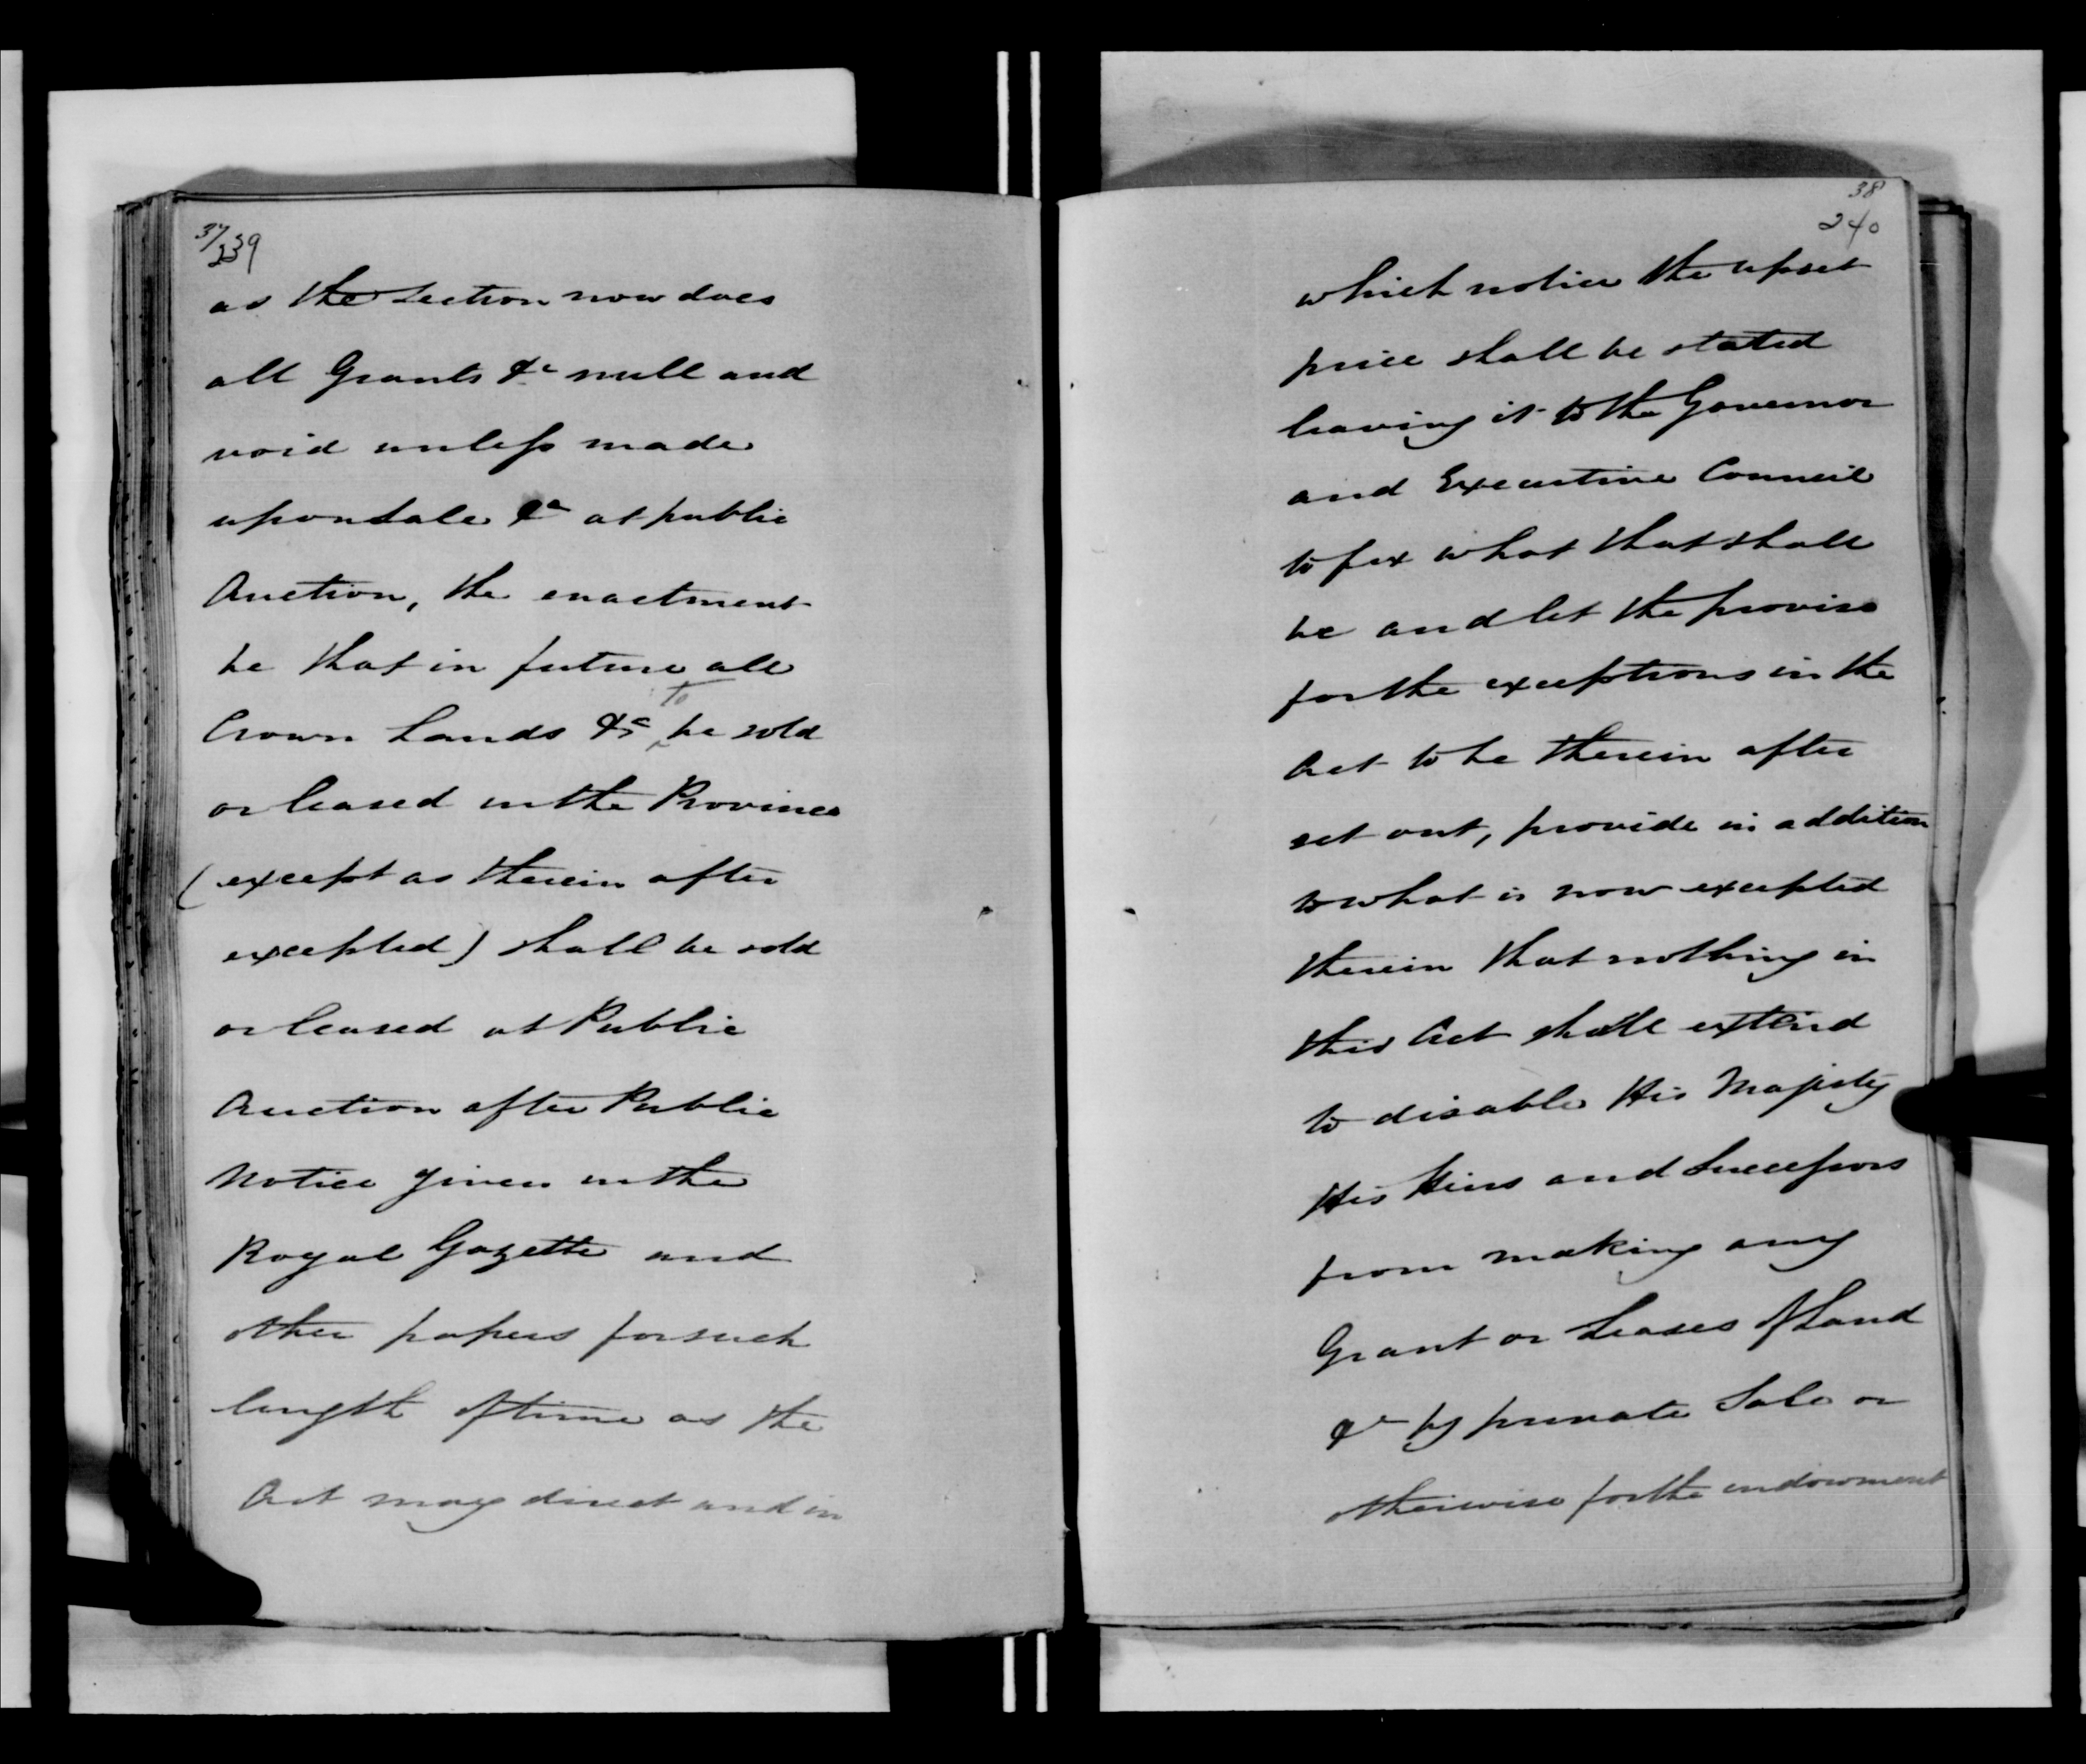 37/239
as the Section now does
all Grants &c null and
void unless made
upon Sale &c at public
Auction, the enactment
be that in future all
Crown Lands &c to be sold
or leased in the Province
(except as therein after
excepted) shall be sold
or leased at Public
Auction after Public
Notice given in the
Royal Gazette and
other papers for such
length of time as the
Act may direct and in
38
240
which notice the upset
price shall be stated
leaving it to the Governor
and Executive Council
to fix what that shall
be and let the proviso
for the exceptions in the
Act to be therein after
set out, provide in addition
to what is now excepted
therein that nothing in
this Act shall extend
to disable His Majesty
His Heirs and Successors
from making any
Grant or Leases of Land
&c by private Sale or
otherwise for the endowment